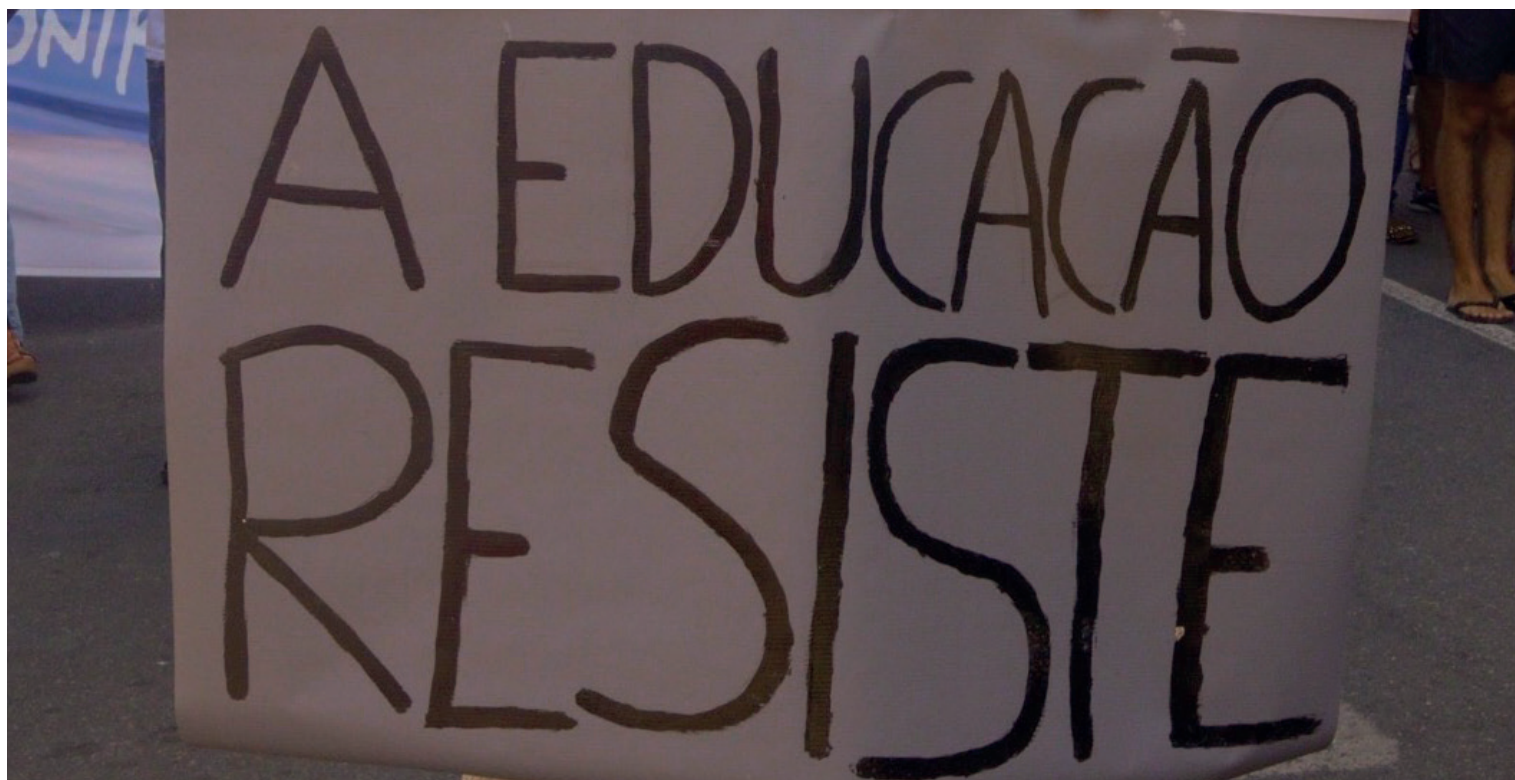 A EDUCACÃO
RESISTE